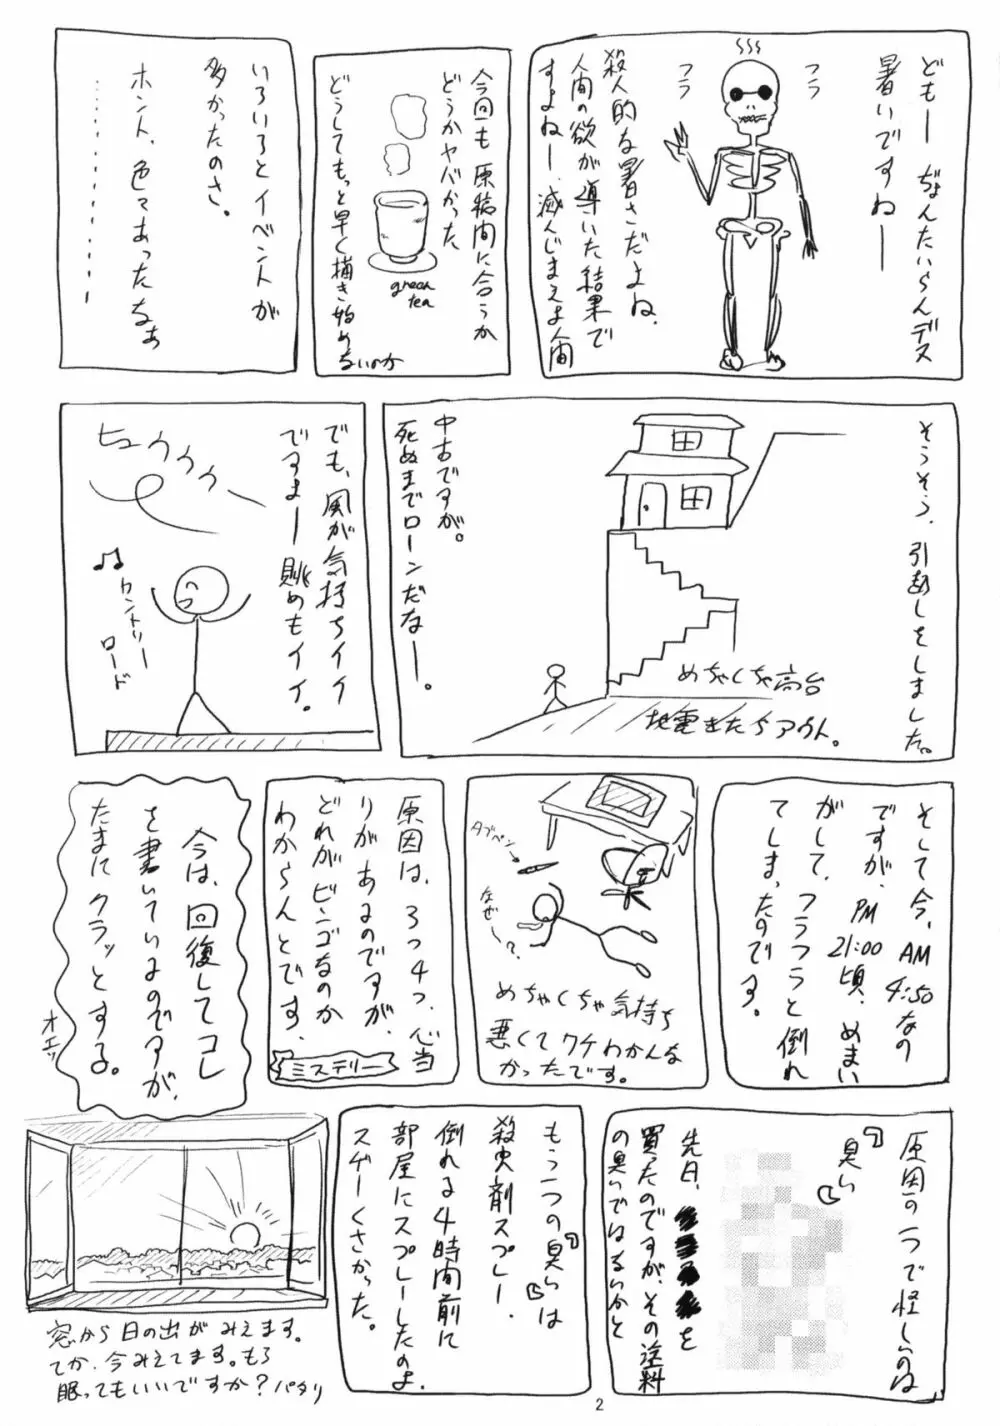 どもー ぢょんたいらんデス
暑いですねー
フラ
フラ
殺人的な暑さだよね、
人間の欲が導いた結果で
すよねー、滅んじまえよ人間
今回も原稿間に合うか
どうかヤバかった
どうしてもっと早く描き始め
ないのか
green
tea
いろいろとイベントが
多かったのさ。
ホント、色々あったなぁ
…………
そうそう、引越しをしました。
めちゃくちゃ高台
地震きたらアウト。
中古ですが。
死ぬまでローンだなー。
でも、風が気持ちイイ
ですよー 眺めもイイ。
ヒュウウウー
♫カントリー
ロード
そして今、AM4:50なの
ですが、PM21:00頃、めまい
がして、フラフラと倒れ
てしまったのです。
タブペン
なぜ〜?
めちゃくちゃ気持ち
悪くてワケわかんな
かったです。
原因は、3つ4つ、心当
りがあるのですが、
どれがビンゴなのか
わからんとです。
ミステリー
今は、回復してコレ
を書いているのですが、
たまにクラッとする。
オエッ
原因の一つで怪しいのは
「臭い」
先日、
を
買ったのですが、その塗料
の臭いではないかと
もう一つの「臭い」は
殺虫剤スプレー、
倒れる4時間前に
部屋にスプレーしたのよ、
スゲーくさかった。
窓から日の出がみえます。
てか、今みえてます。もう
眠ってもいいですか?パタリ
2